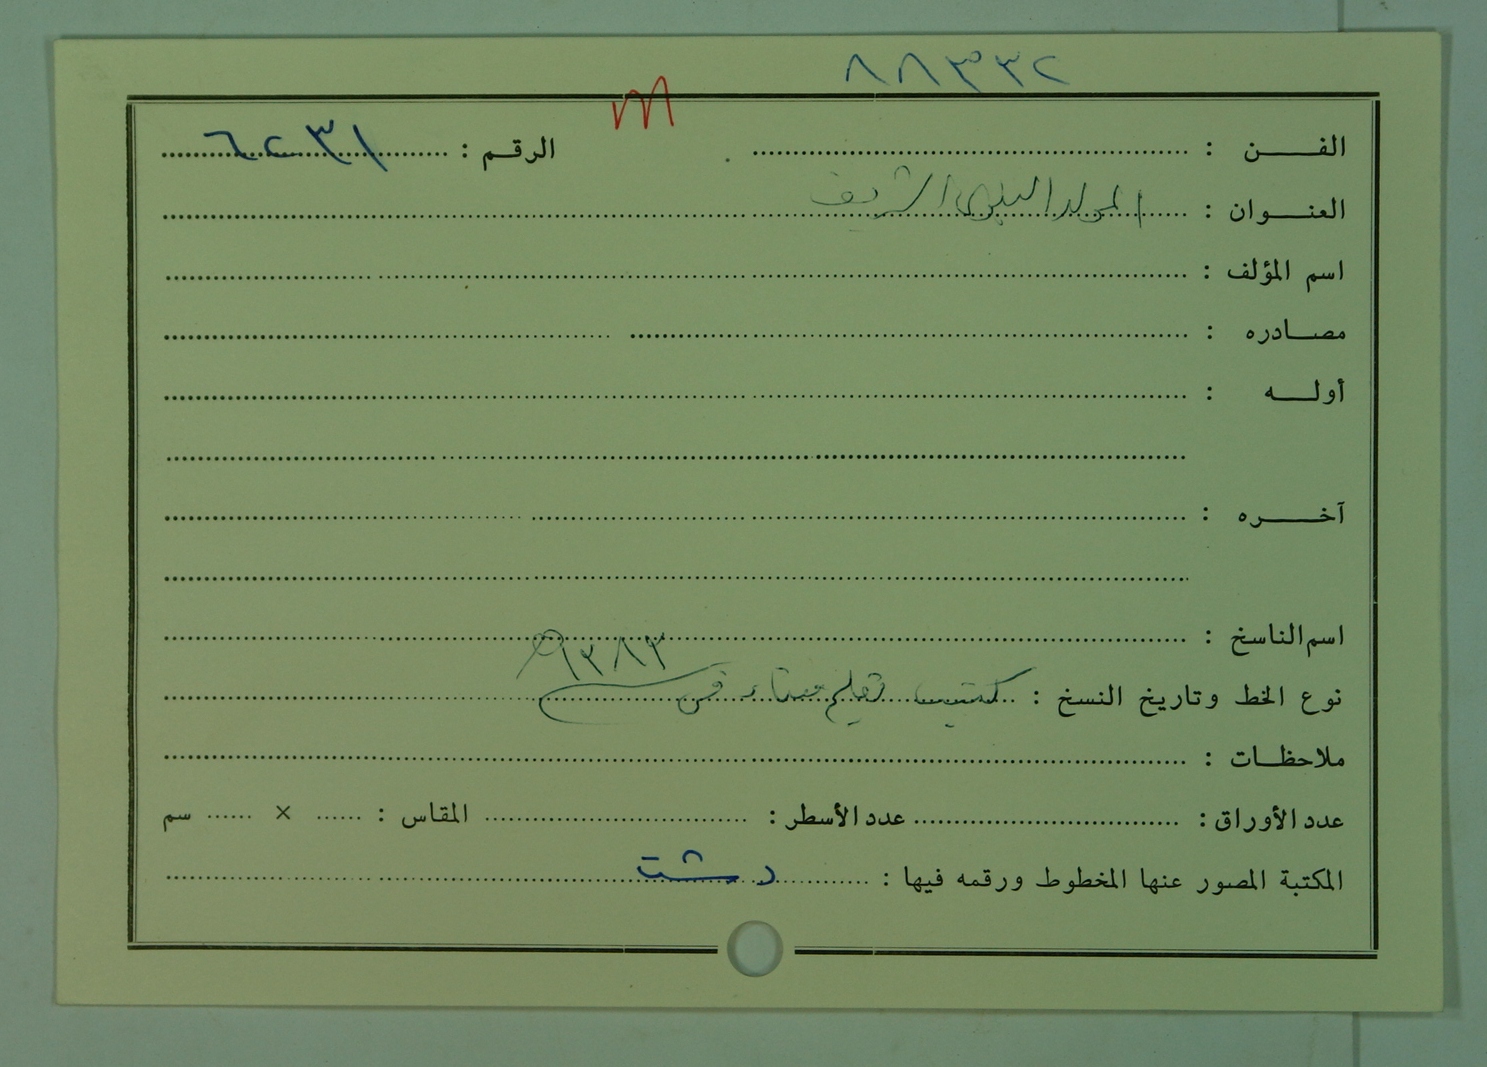 ٨٨٣٣٢
الفن : الرقم : ٦٢٣١
العنوان : المولد النبوي الشريف
اسم المؤلف :
مصادره :
أوله :
آخره :
اسم الناسخ :
نوع الخط وتاريخ النسخ : كتبت ٨٣
ملاحظات :
عدد الأوراق : عدد الأسطر : المقاس : × سم
المكتبة المصور عنها المخطوط ورقمه فيها : دشت